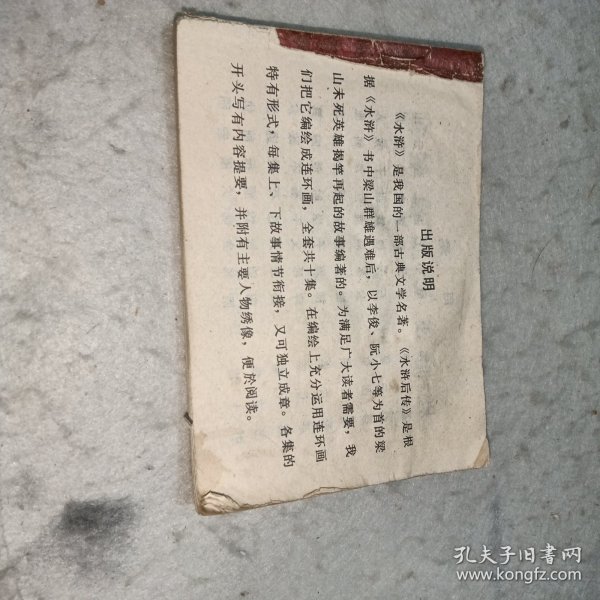 出版说明
《水浒》是我国的一部古典文学名著。《水浒后传》是根
据《水浒》书中梁山群雄遇难后，以李俊、阮小七等为首的梁
山未死英雄揭竿再起的故事编著的。为满足广大读者需要，我
们把它编绘成连环画，全套共十集。在编绘上充分运用连环画
特有形式，每集上、下故事情节衔接，又可独立成章。各集的
开头写有内容提要，并附有主要人物绣像，便於阅读。
孔夫子旧书网
www.kongfz.com